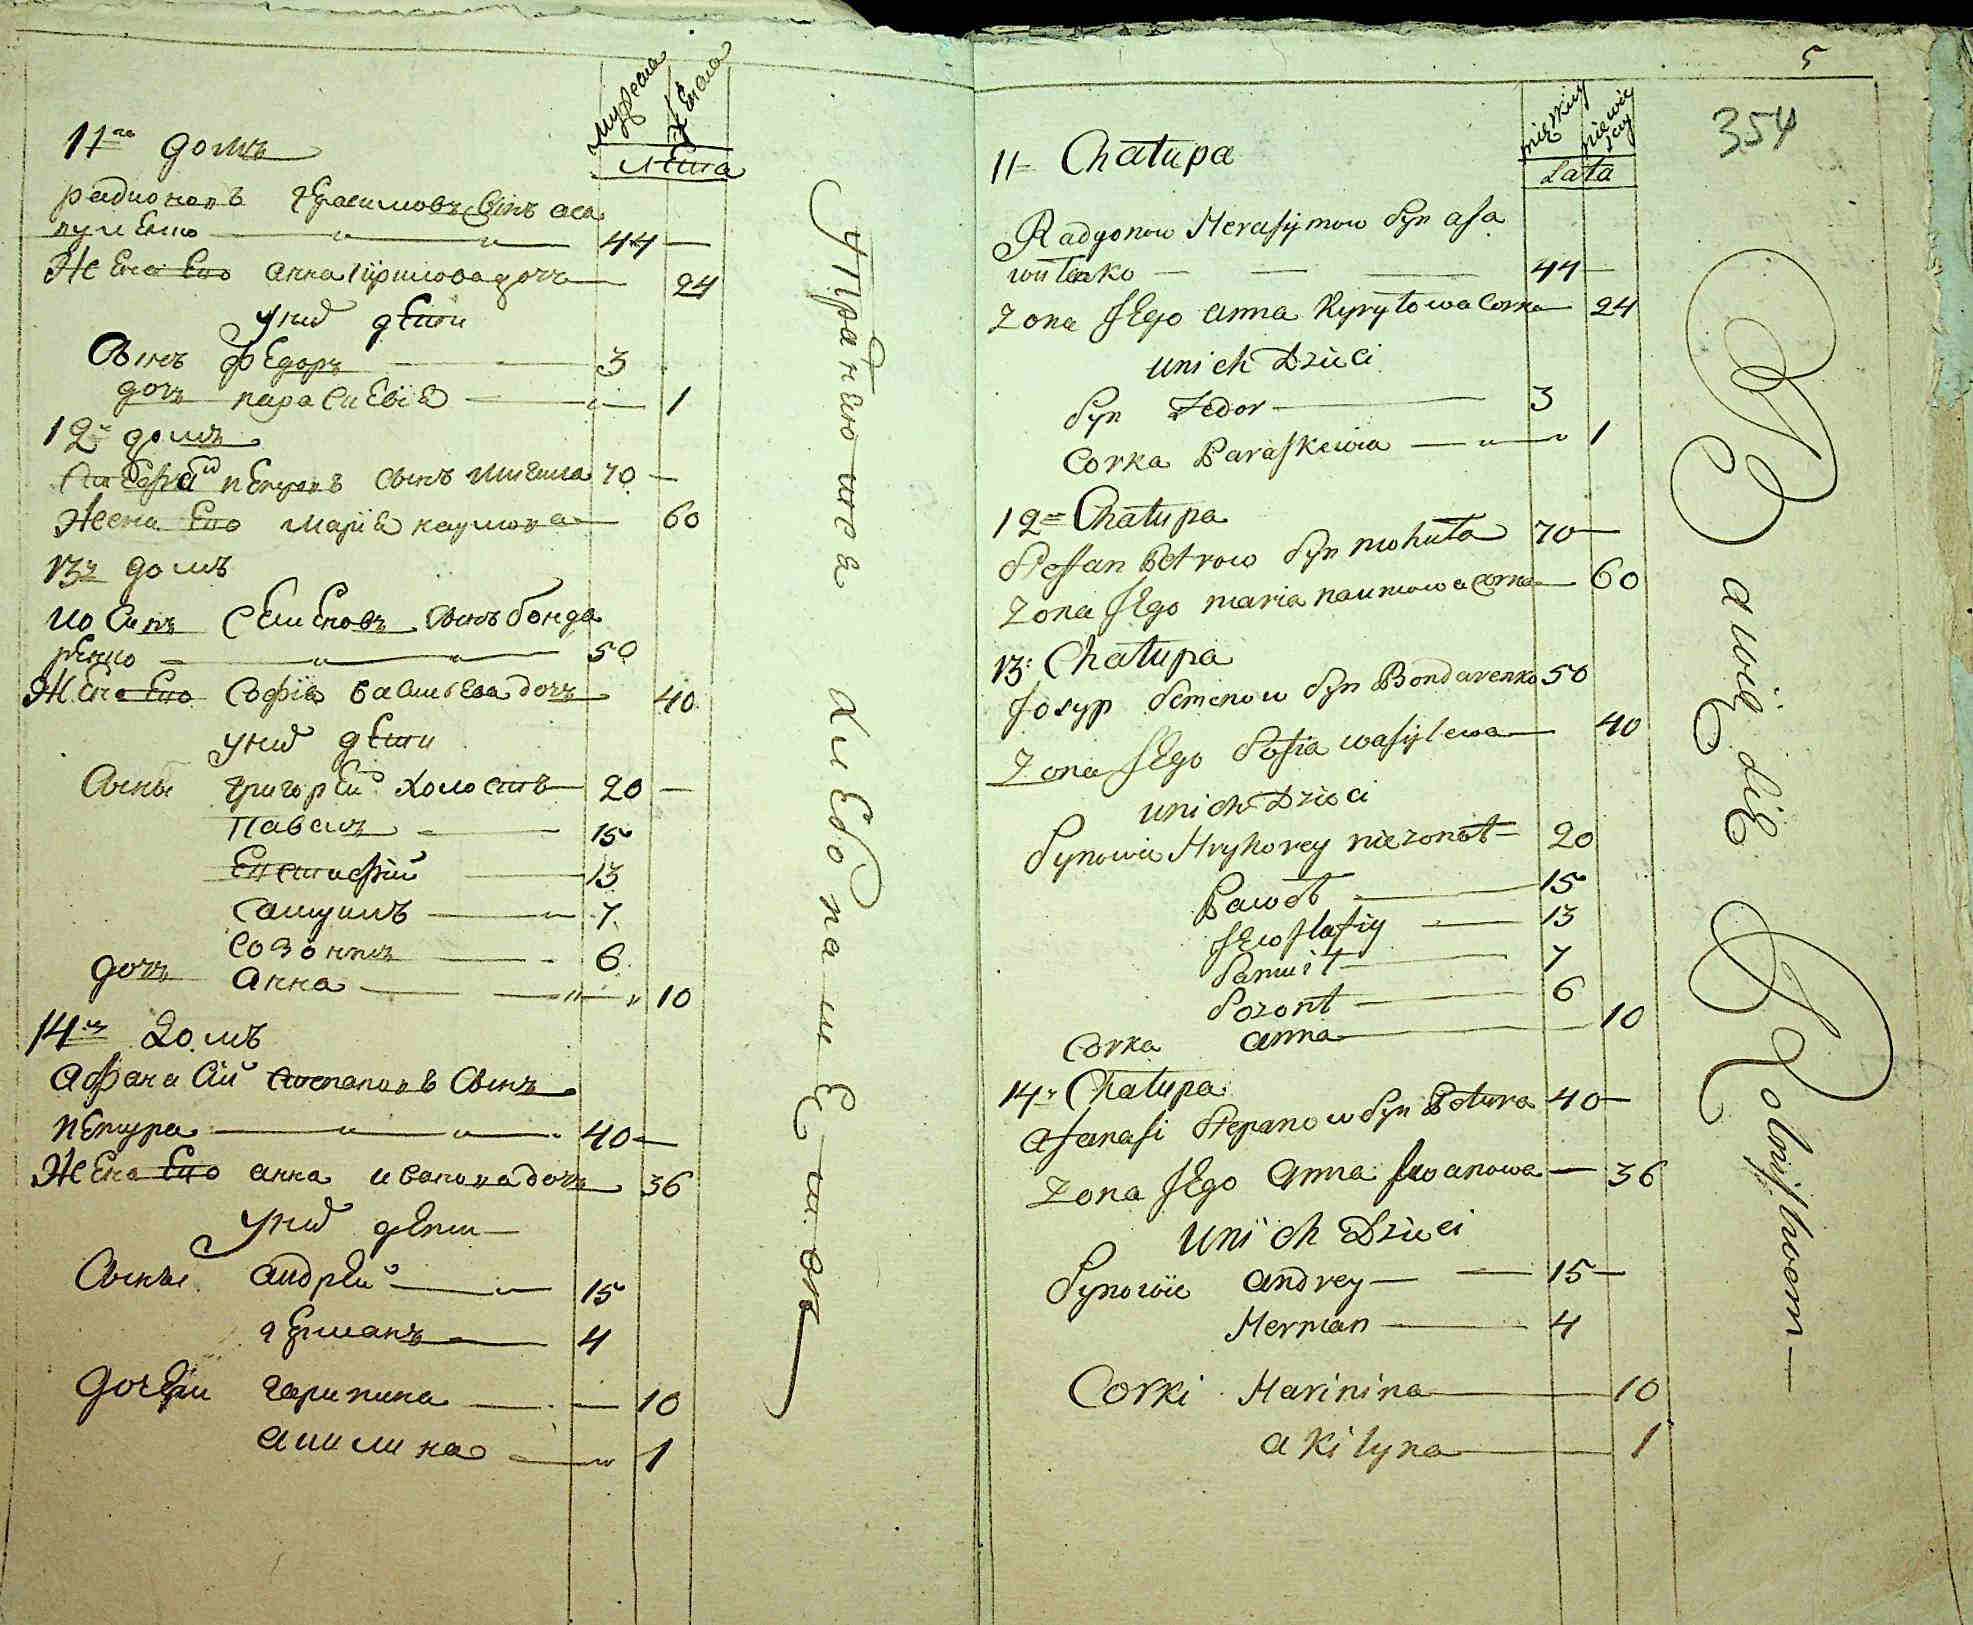 мужеска женска
лѣта
11го домъ
радионовъ герасимовъ сынъ аса
вуленко 44
Жена его анна кирилова дочь 24
у них дѣти
Сынъ федоръ 3
дочь параскевіа 1
12й домъ
стефан петровъ сынъ 70
Жена его маріа наумова 60
13й домъ
иосипъ семеновъ сынъ бонда
ренко 50
Жена его софиа васильева дочь 40
у них дѣти
Сыны григорей холостъ 20
павелъ 15
евстафий 13
самуилъ 7
созонтъ 6
дочь анна 10
14й домъ
афанасий степановъ сынъ
петура 40
Жена его анна иванова дочь 36
у них дѣти
Сыны андрей 15
германъ 4
дочери гарипина 10
акилина 1
упражняются хлебопашеством
5
354
męzkiey niewieściey
Lata
11 Chałupa
Radyonow Herasymow Syn asa
wulenko 44
Zona Jego anna Kyryłowa Corka 24
u nich Dzieci
Syn Fedor 3
Corka Paraskewia 1
12 Chałupa
Stefan Petrow Syn 70
Zona Jego maria naumowa Corka 60
13: Chałupa
Josyp Semenow Syn Bondarenko 50
Zona Jego Sofia wasylewa 40
u nich Dzieci
Synowie Hryhorey niezonat 20
Paweł 15
Jewstafiy 13
Samuił 7
Sozont 6
Corka anna 10
14 Chałupa
afanasi Stepanow Syn Petura 40
Zona Jego Anna Jwanowa 36
u nich Dzieci
Synowie andrey 15
Herman 4
Corki Harinina 10
akilyna 1
Bawię się Rolnistwem